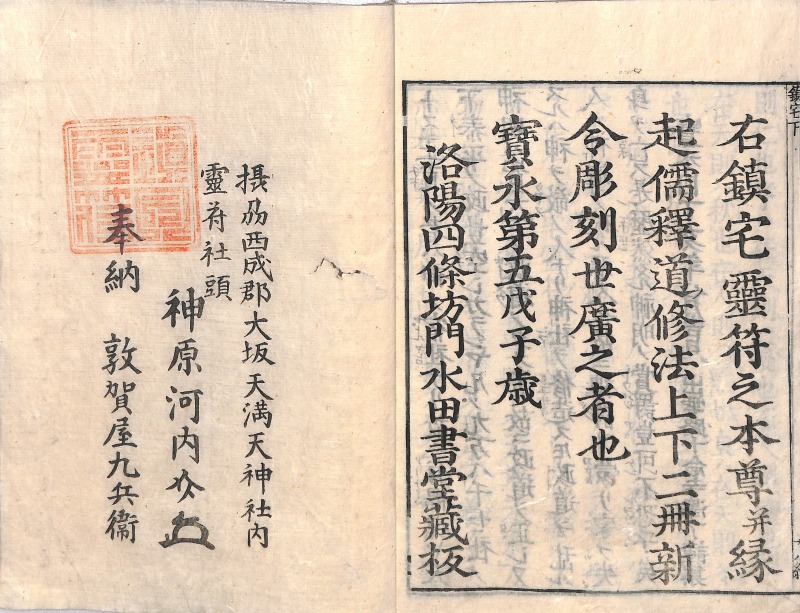 右鎮宅靈符之本尊并縁
起儒釋道修法上下二冊新
令彫刻世廣之者也
寶永第五戊子歳
洛陽四條坊門水田書堂藏板
鎮宅下
摂刕西成郡大坂天満天神社内
靈符社頭
神原河内
奉納
敦賀屋九兵衞